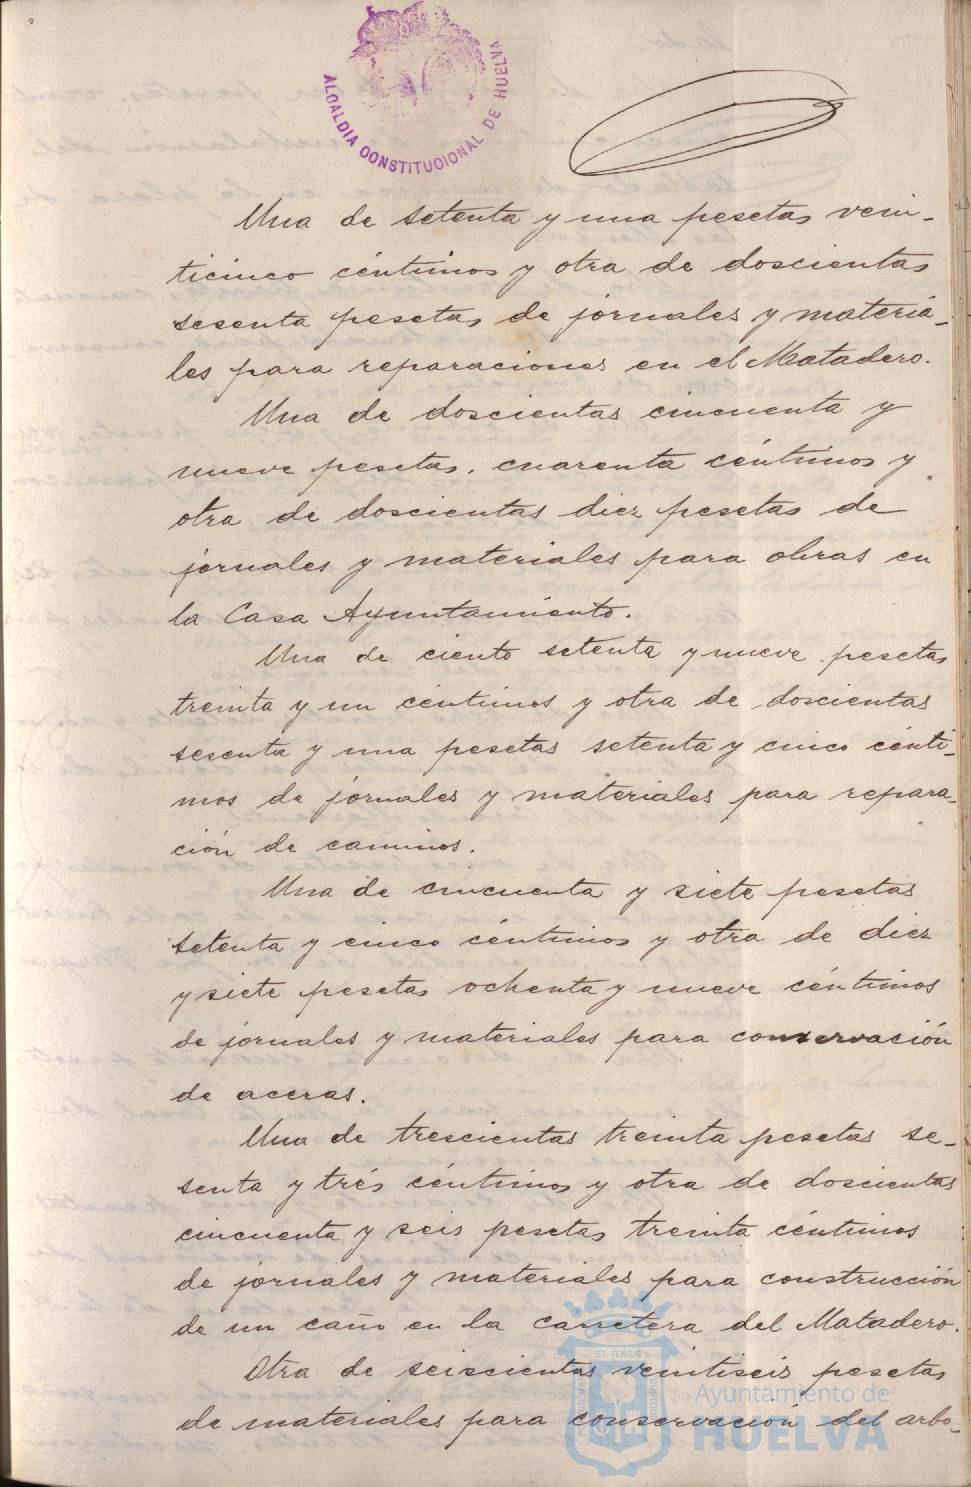 ALCALDIA CONSTITUCIONAL DE HUELVA
Una de setenta y una pesetas vein-
ticinco céntimos y otra de doscientas
sesenta pesetas de jornales y materia-
les para reparaciones en el Matadero.
Una de doscientas cincuenta y
nueve pesetas. cuarenta céntimos y
otra de doscientas diez pesetas de
jornales y materiales para obras en
la Casa Ayuntamiento.
Una de ciento setenta y nueve pesetas
treinta y un céntimos y otra de doscientas
sesenta y una pesetas setenta y cinco cénti-
mos de jornales y materiales para repara-
ción de caminos.
Una de cincuenta y siete pesetas
setenta y cinco céntimos y otra de diez
y siete pesetas ochenta y nueve céntimos
de jornales y materiales para conservación
de aceras.
Una de trescientas treinta pesetas se-
senta y trés céntimos y otra de doscientas
cincuenta y seis pesetas treinta céntimos
de jornales y materiales para construcción
de un caño en la carretera del Matadero.
Otra de seiscientas veintiseis pesetas
de materiales para conservación del arbo-
Ayuntamiento de
HUELVA